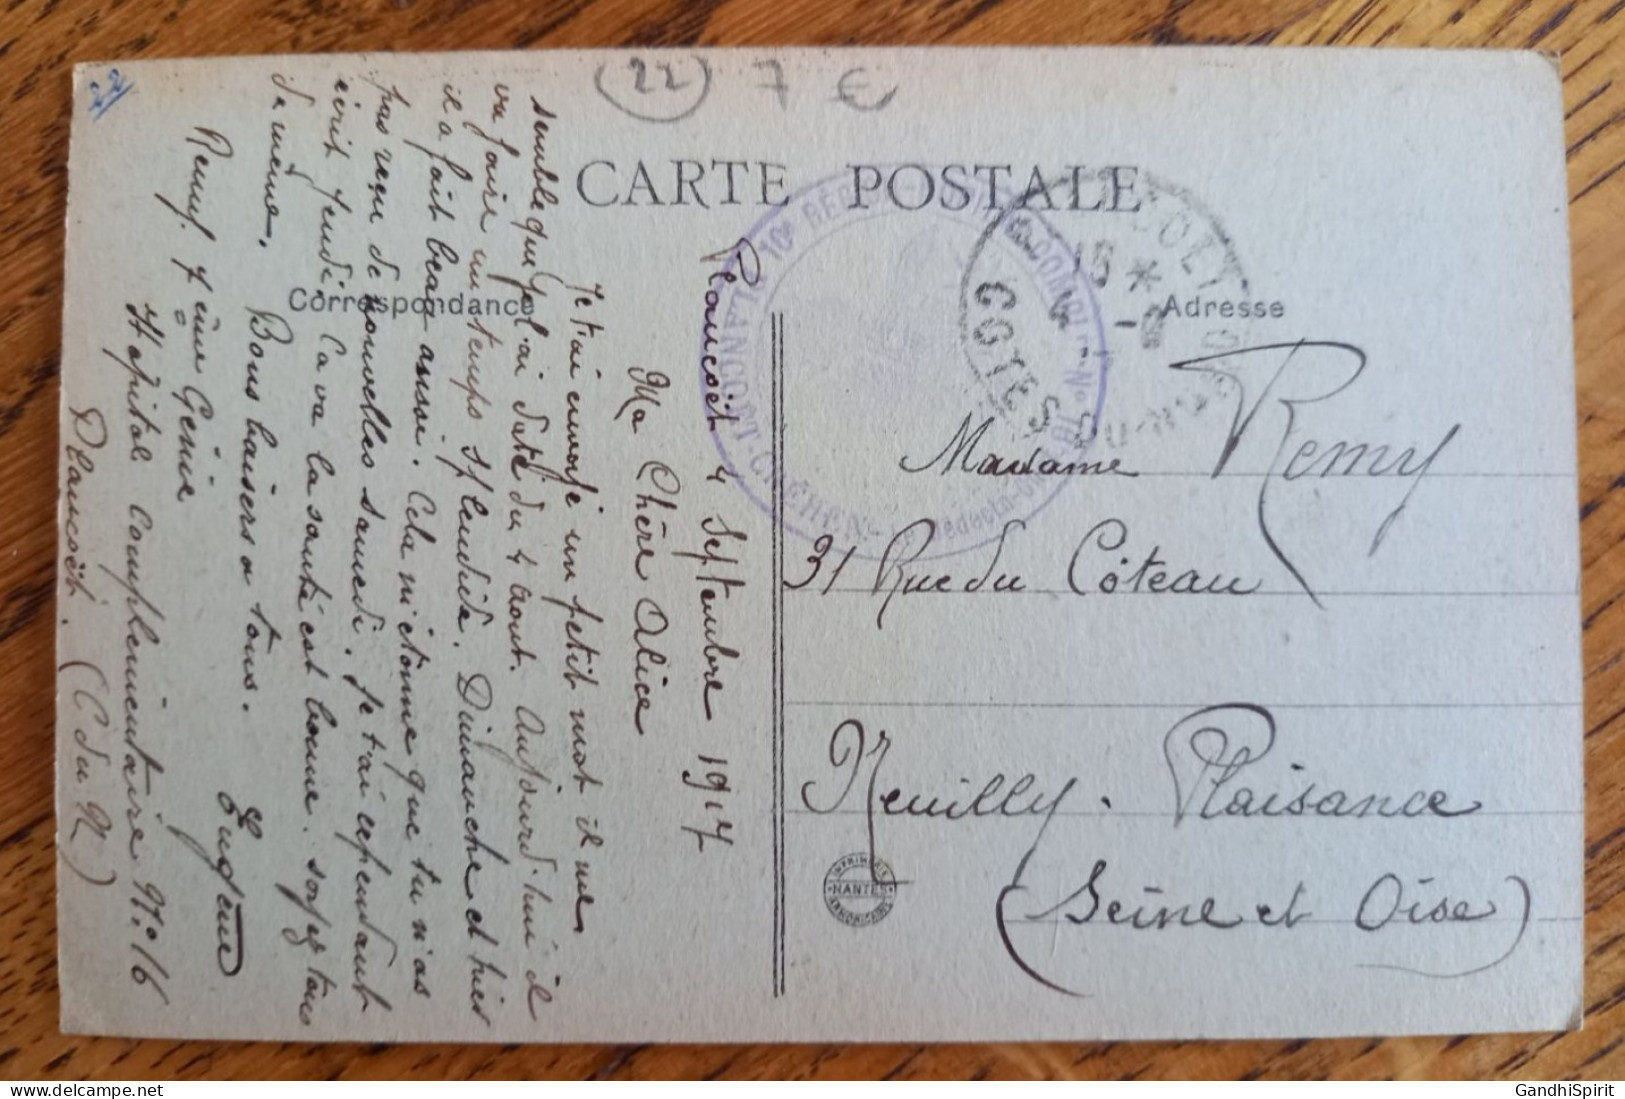 22 7 €
CARTE POSTALE
Correspondance
Adresse
Plancoët 4 Septembre 1917
Ma Chère Alice
Je t'ai envoyé un petit mot il me
semble que je l'ai daté du 4 aout. Aujourd'hui il
va faire un temps splendide. Dimanche et hier
il a fait beau aussi. Cela m'étonne que tu n'as
pas reçu de nouvelles samedi. Je t'ai cependant
écrit jeudi. Ca va la santé est bonne. soyez tous
de même.
Bons baisers a tous.
Eugène
Remy 7ème Génie
Hôpital Complémentaire N° 16
Plancoët. (C du N)
Madame Remy
31 Rue du Côteau
Neuilly. Plaisance
(Seine et Oise)
IMPRIMERIE
NANTES
ARMORICAINE
10e RÉGION
PLANCOËT-CRÉHEN
COTES-DU-NORD